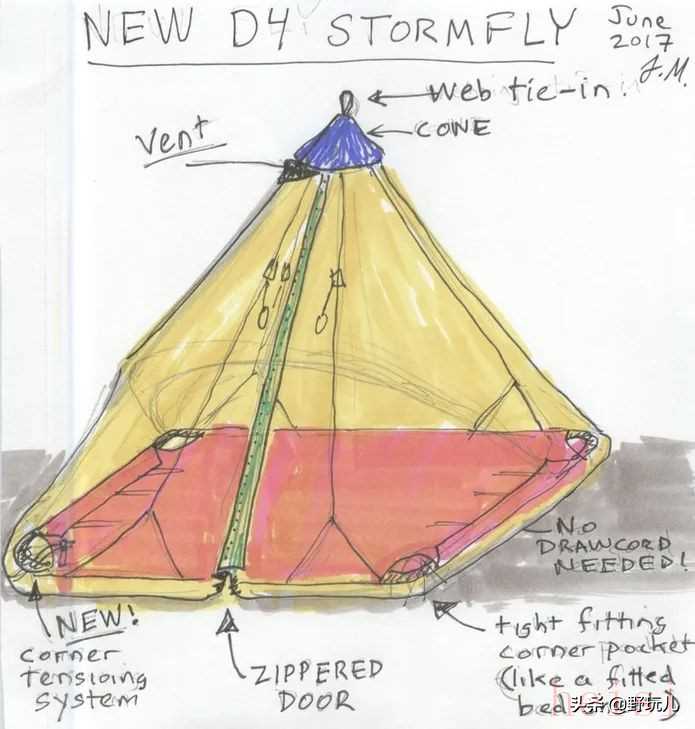 NEW D4 STORMFLY
June
2017
J.M.
Web tie-in
CONE
Vent
NO
DRAWCORD
NEEDED!
NEW!
corner
tensioing
system
ZIPPERED
DOOR
tight fitting
corner pocket
(like a fitted
bed
头条 @野玩儿